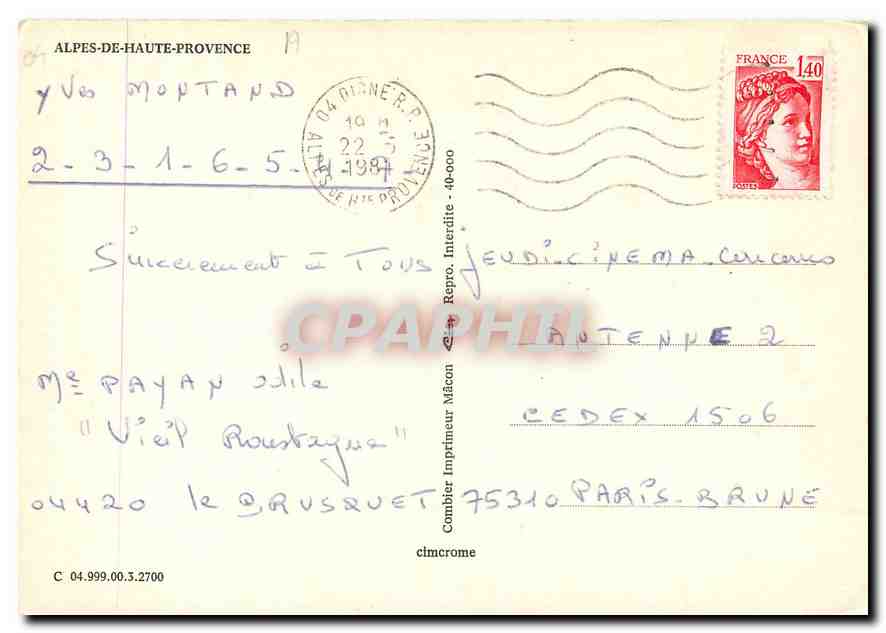 ALPES-DE-HAUTE-PROVENCE
Yves MONTAND
2-3-1-6-5-
Sincèrement à Tous
Me PAYAN Odile
"Vieil Roustagne"
04420 le BRUSQUET
C 04.999.00.3.2700
04 DIGNE R.P.
22
ALPES DE HTE PROVENCE
FRANCE
1,40
POSTES
Combier Imprimeur Mâcon Cim Repro. Interdite - 40-000
cimcrome
JEUDI-CINEMA-Concours
ANTENNE 2
CEDEX 1506
75310 PARIS-BRUNE
CPAPHIL